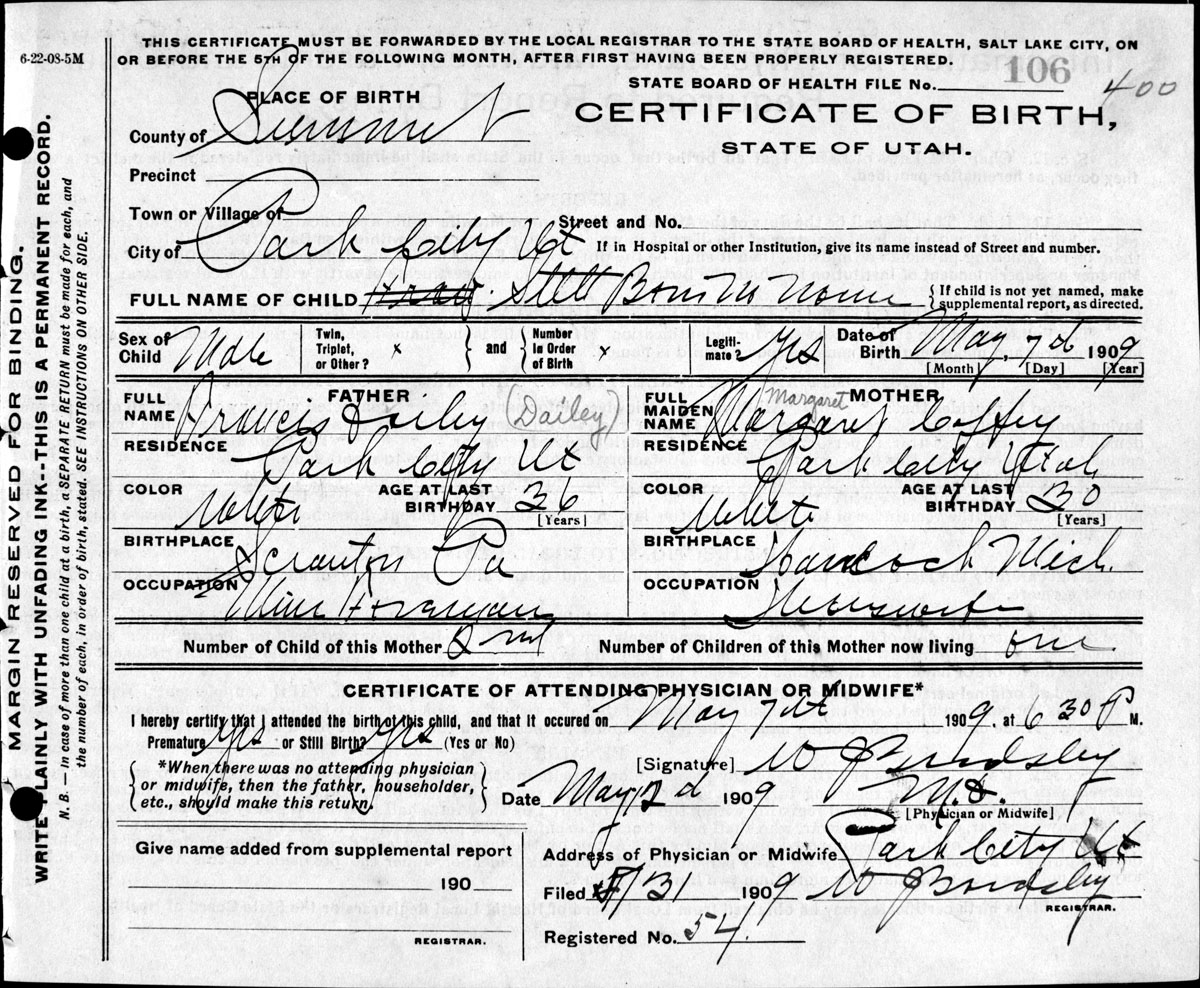 THIS CERTIFICATE MUST BE FORWARDED BY THE LOCAL REGISTRAR TO THE STATE BOARD OF HEALTH, SALT LAKE CITY, ON
6-22-08-5M OR BEFORE THE 5TH OF THE FOLLOWING MONTH, AFTER FIRST HAVING BEEN PROPERLY REGISTERED.
STATE BOARD OF HEALTH FILE No. 106 400
PLACE OF BIRTH
CERTIFICATE OF BIRTH,
County of Summit
STATE OF UTAH.
Precinct
Town or Village of
Street and No.
City of Park City Ut
If in Hospital or other Institution, give its name instead of Street and number.
FULL NAME OF CHILD Still Born No Name { If child is not yet named, make supplemental report, as directed.
Sex of Child Male Twin, Triplet, or Other? x } and { Number in Order of Birth x Legiti-mate? yes Date of Birth May 7th 1909
[Month] [Day] [Year]
FATHER
FULL NAME Francis (Dailey)
RESIDENCE Park City Ut
COLOR White AGE AT LAST BIRTHDAY 36 [Years]
BIRTHPLACE Scranton Pa
OCCUPATION Mine Foreman
MOTHER
Margaret
FULL MAIDEN NAME Margaret Coffey
RESIDENCE Park City Utah
COLOR White AGE AT LAST BIRTHDAY 30 [Years]
BIRTHPLACE Hancock Mich.
OCCUPATION Housewife
Number of Child of this Mother 2nd Number of Children of this Mother now living one
CERTIFICATE OF ATTENDING PHYSICIAN OR MIDWIFE*
I hereby certify that I attended the birth of this child, and that it occured on May 7th 1909, at 6 30 P M.
Premature yes or Still Birth? yes (Yes or No)
*When there was no attending physician
or midwife, then the father, householder,
etc., should make this return.
[Signature] W
Date May 1909 M.D.
[Physician or Midwife]
Give name added from supplemental report
190
REGISTRAR.
Address of Physician or Midwife Park City Ut
Filed 1909 W
REGISTRAR.
Registered No. 54
MARGIN RESERVED FOR BINDING.
WRITE PLAINLY WITH UNFADING INK--THIS IS A PERMANENT RECORD.
N. B. — In case of more than one child at a birth, a SEPARATE RETURN must be made for each, and
the number of each, in order of birth, stated. SEE INSTRUCTIONS ON OTHER SIDE.